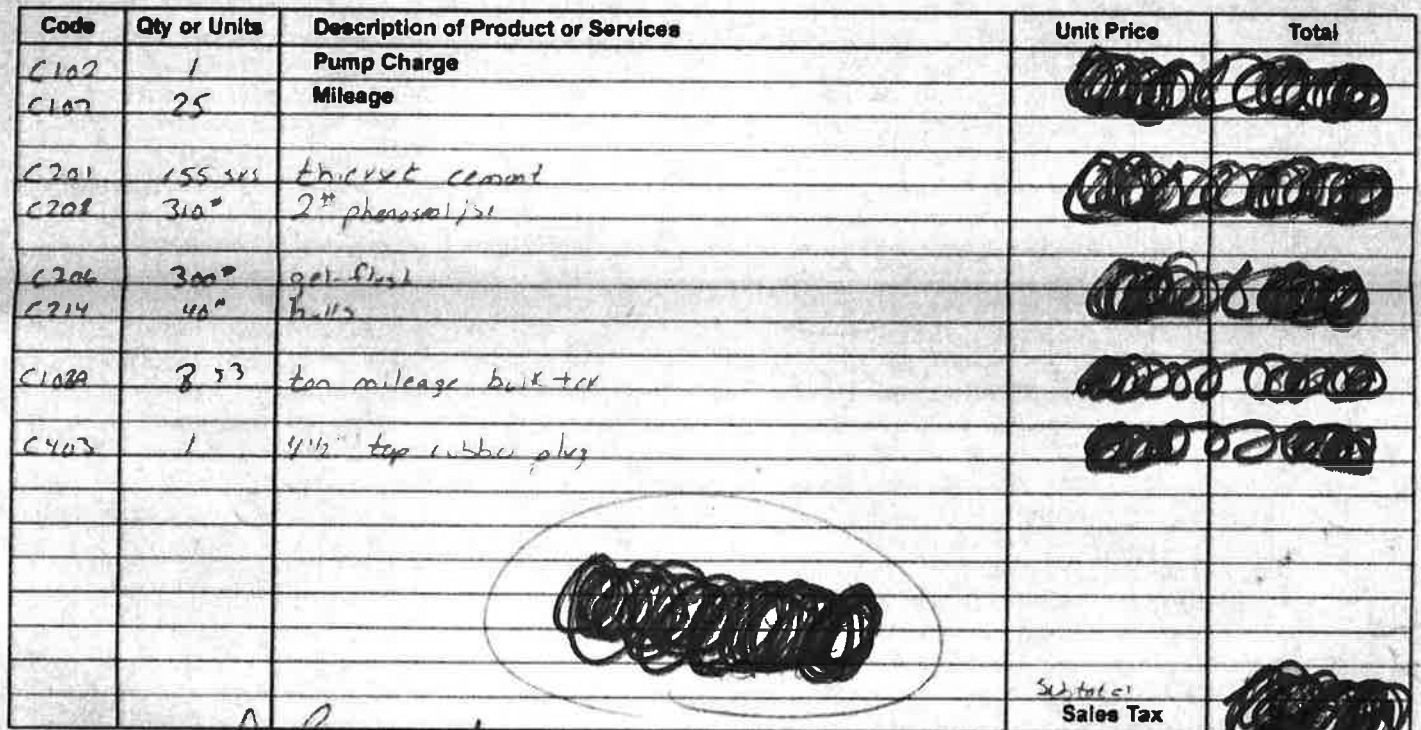 Code Qty or Units Description of Product or Services Unit Price Total
C102 1 Pump Charge
C107 25 Mileage
C201 155 sks thickset cement
C208 310# 2# phenoseal/sk
C206 300# gel-flush
C214 40# hulls
C108A 8.53 ton mileage bulk trk
C403 1 4 1/2" top rubber plug
Subtotal
Sales Tax